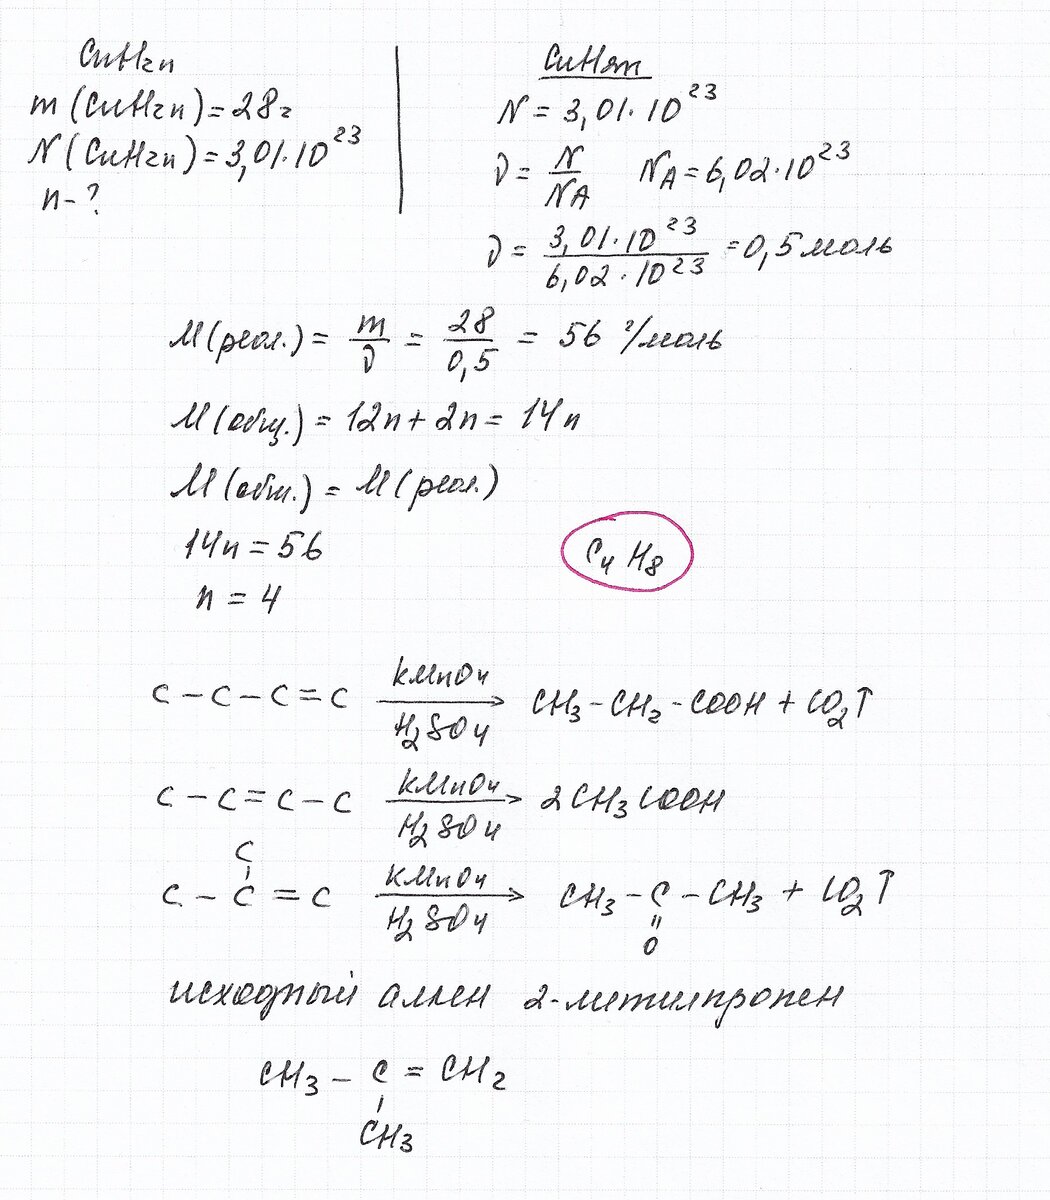 CnH2n
m(CnH2n)=28г
N(CnH2n)=3,01·10²³
n-?
CnH2n
N = 3,01·10²³
ν = N/NA   NA=6,02·10²³
ν = 3,01·10²³ / 6,02·10²³ = 0,5 моль
M(реал.) = m/ν = 28/0,5 = 56 г/моль
M(общ.) = 12n + 2n = 14n
M(общ.) = M(реал.)
14n = 56
n = 4
C₄H₈
C – C – C = C KMnO₄ / H₂SO₄ → CH₃ – CH₂ – COOH + CO₂↑
C – C = C – C KMnO₄ / H₂SO₄ → 2CH₃COOH
C
C – C = C KMnO₄ / H₂SO₄ → CH₃ – C – CH₃ + CO₂↑
O
исходный алкен 2-метилпропен
CH₃ – C = CH₂
CH₃